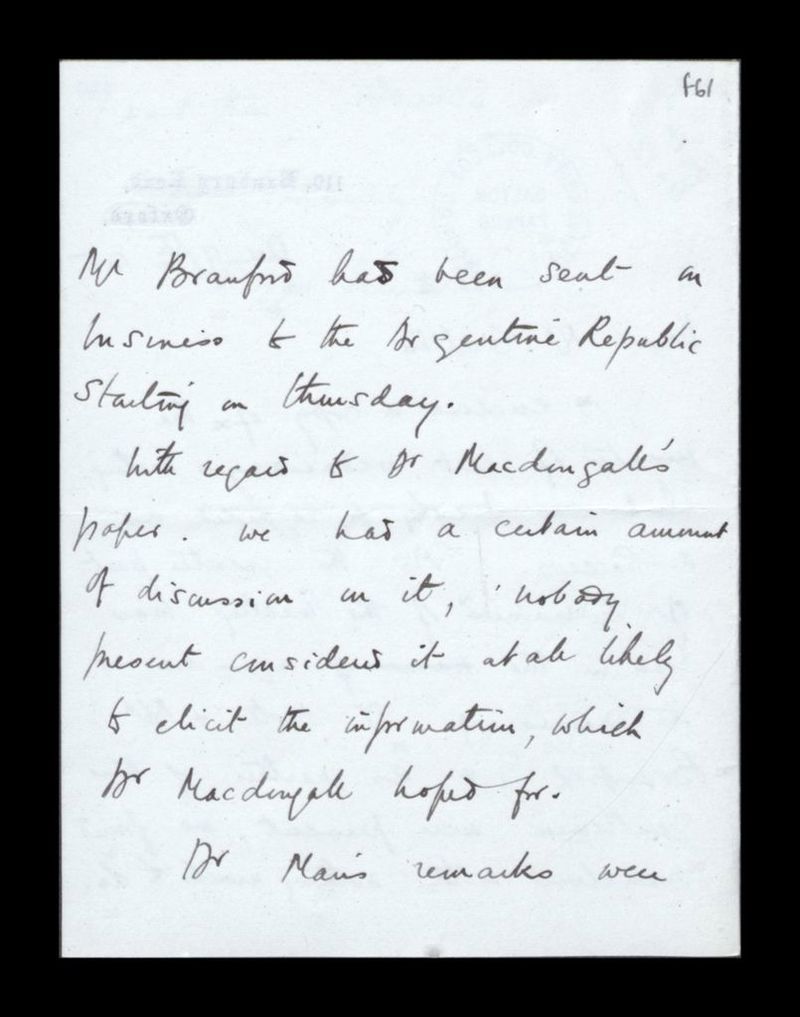 f61
Mr Branford had been sent on
business to the Argentine Republic
starting on thursday.
With regard to Dr Macdongall's
paper. we had a certain amount
of discussion on it, & nobody
present considered it at all likely
to elicit the information, which
Dr Macdongall hoped for.
Dr Mair's remarks were
110, Banbury Road,
Oxford.